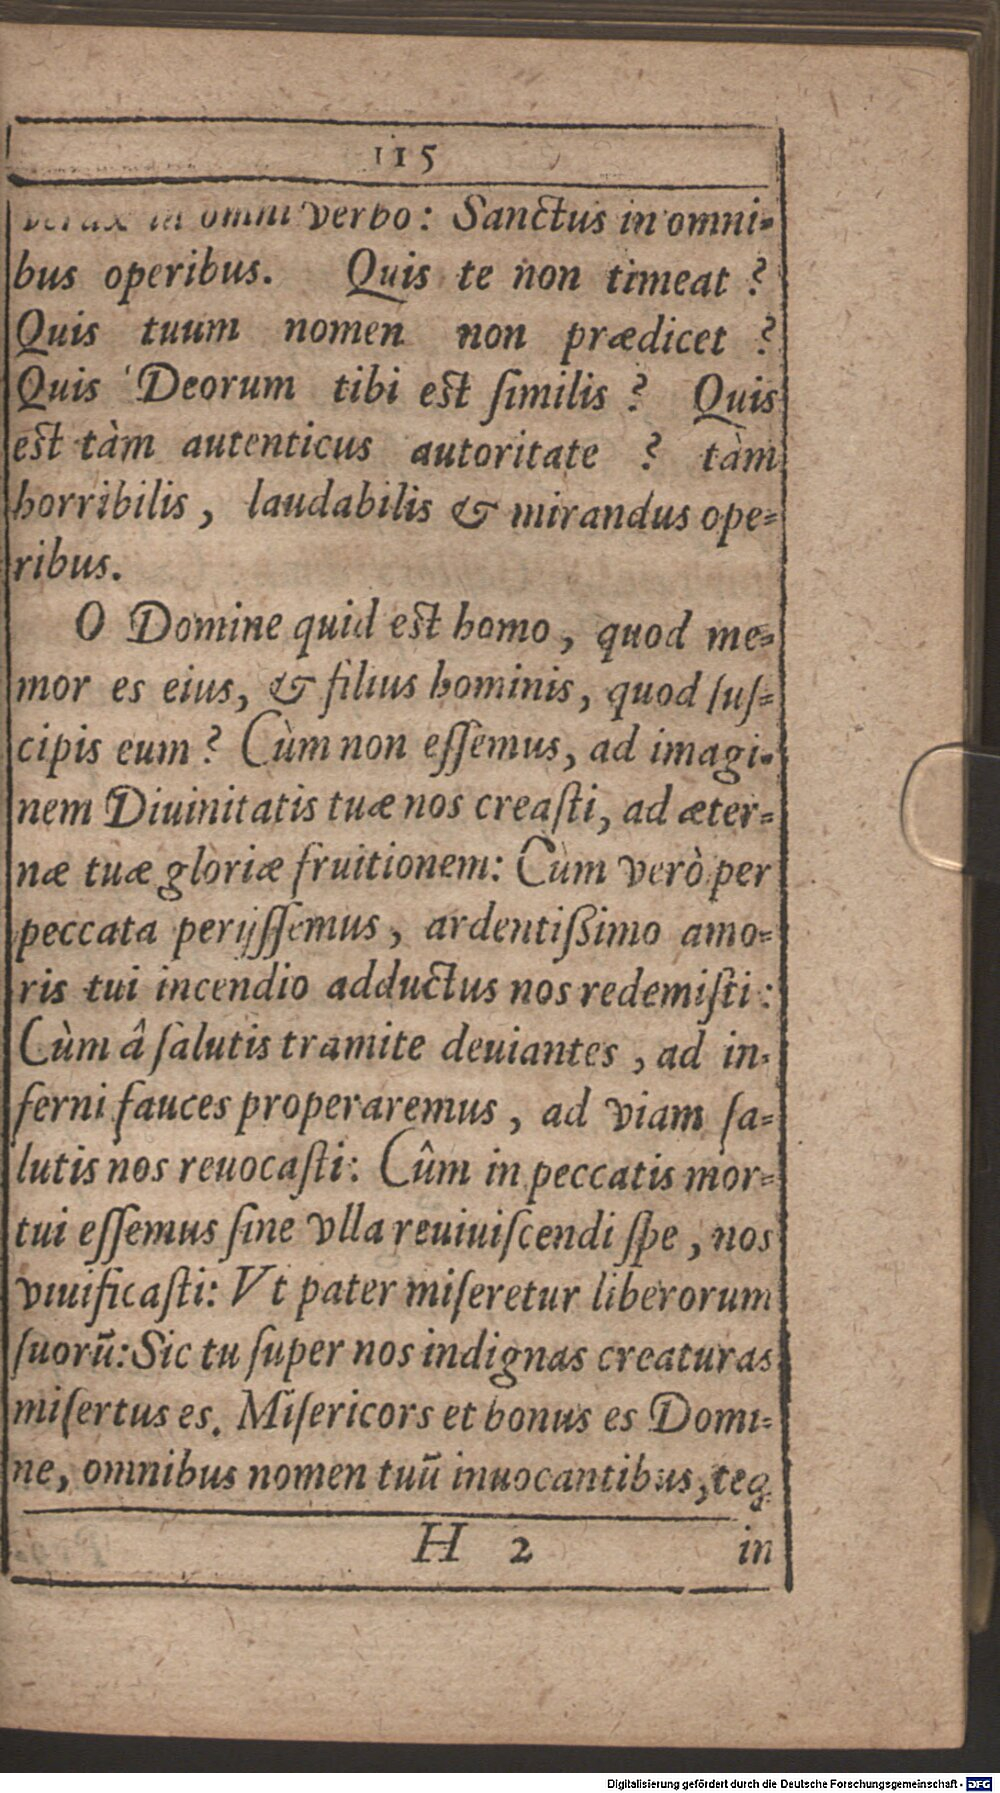 115
verax in omni verbo: Sanctus in omni-
bus operibus. Quis te non timeat ?
Quis tuum nomen non prædicet ?
Quis Deorum tibi est ſimilis ? Quis
est tàm autenticus autoritate ? tàm
horribilis, laudabilis & mirandus ope-
ribus.
O Domine quid est homo, quod me-
mor es eius, & filius hominis, quod ſuſ-
cipis eum ? Cùm non eſſemus, ad imagi-
nem Diuinitatis tuæ nos creaſti, ad æter-
næ tuæ gloriæ fruitionem: Cùm verò per
peccata perijſſemus, ardentiſſimo amo-
ris tui incendio adductus nos redemiſti:
Cùm â ſalutis tramite deuiantes, ad in-
ferni fauces properaremus, ad viam ſa-
lutis nos reuocaſti: Cûm in peccatis mor-
tui eſſemus ſine vlla reuiuiſcendi ſpe, nos
viuificaſti: Vt pater miſeretur liberorum
ſuorū: Sic tu ſuper nos indignas creaturas
miſertus es. Miſericors et bonus es Domi-
ne, omnibus nomen tuū inuocantibus, teq;
H 2 in
Digitalisierung gefördert durch die Deutsche Forschungsgemeinschaft - DFG